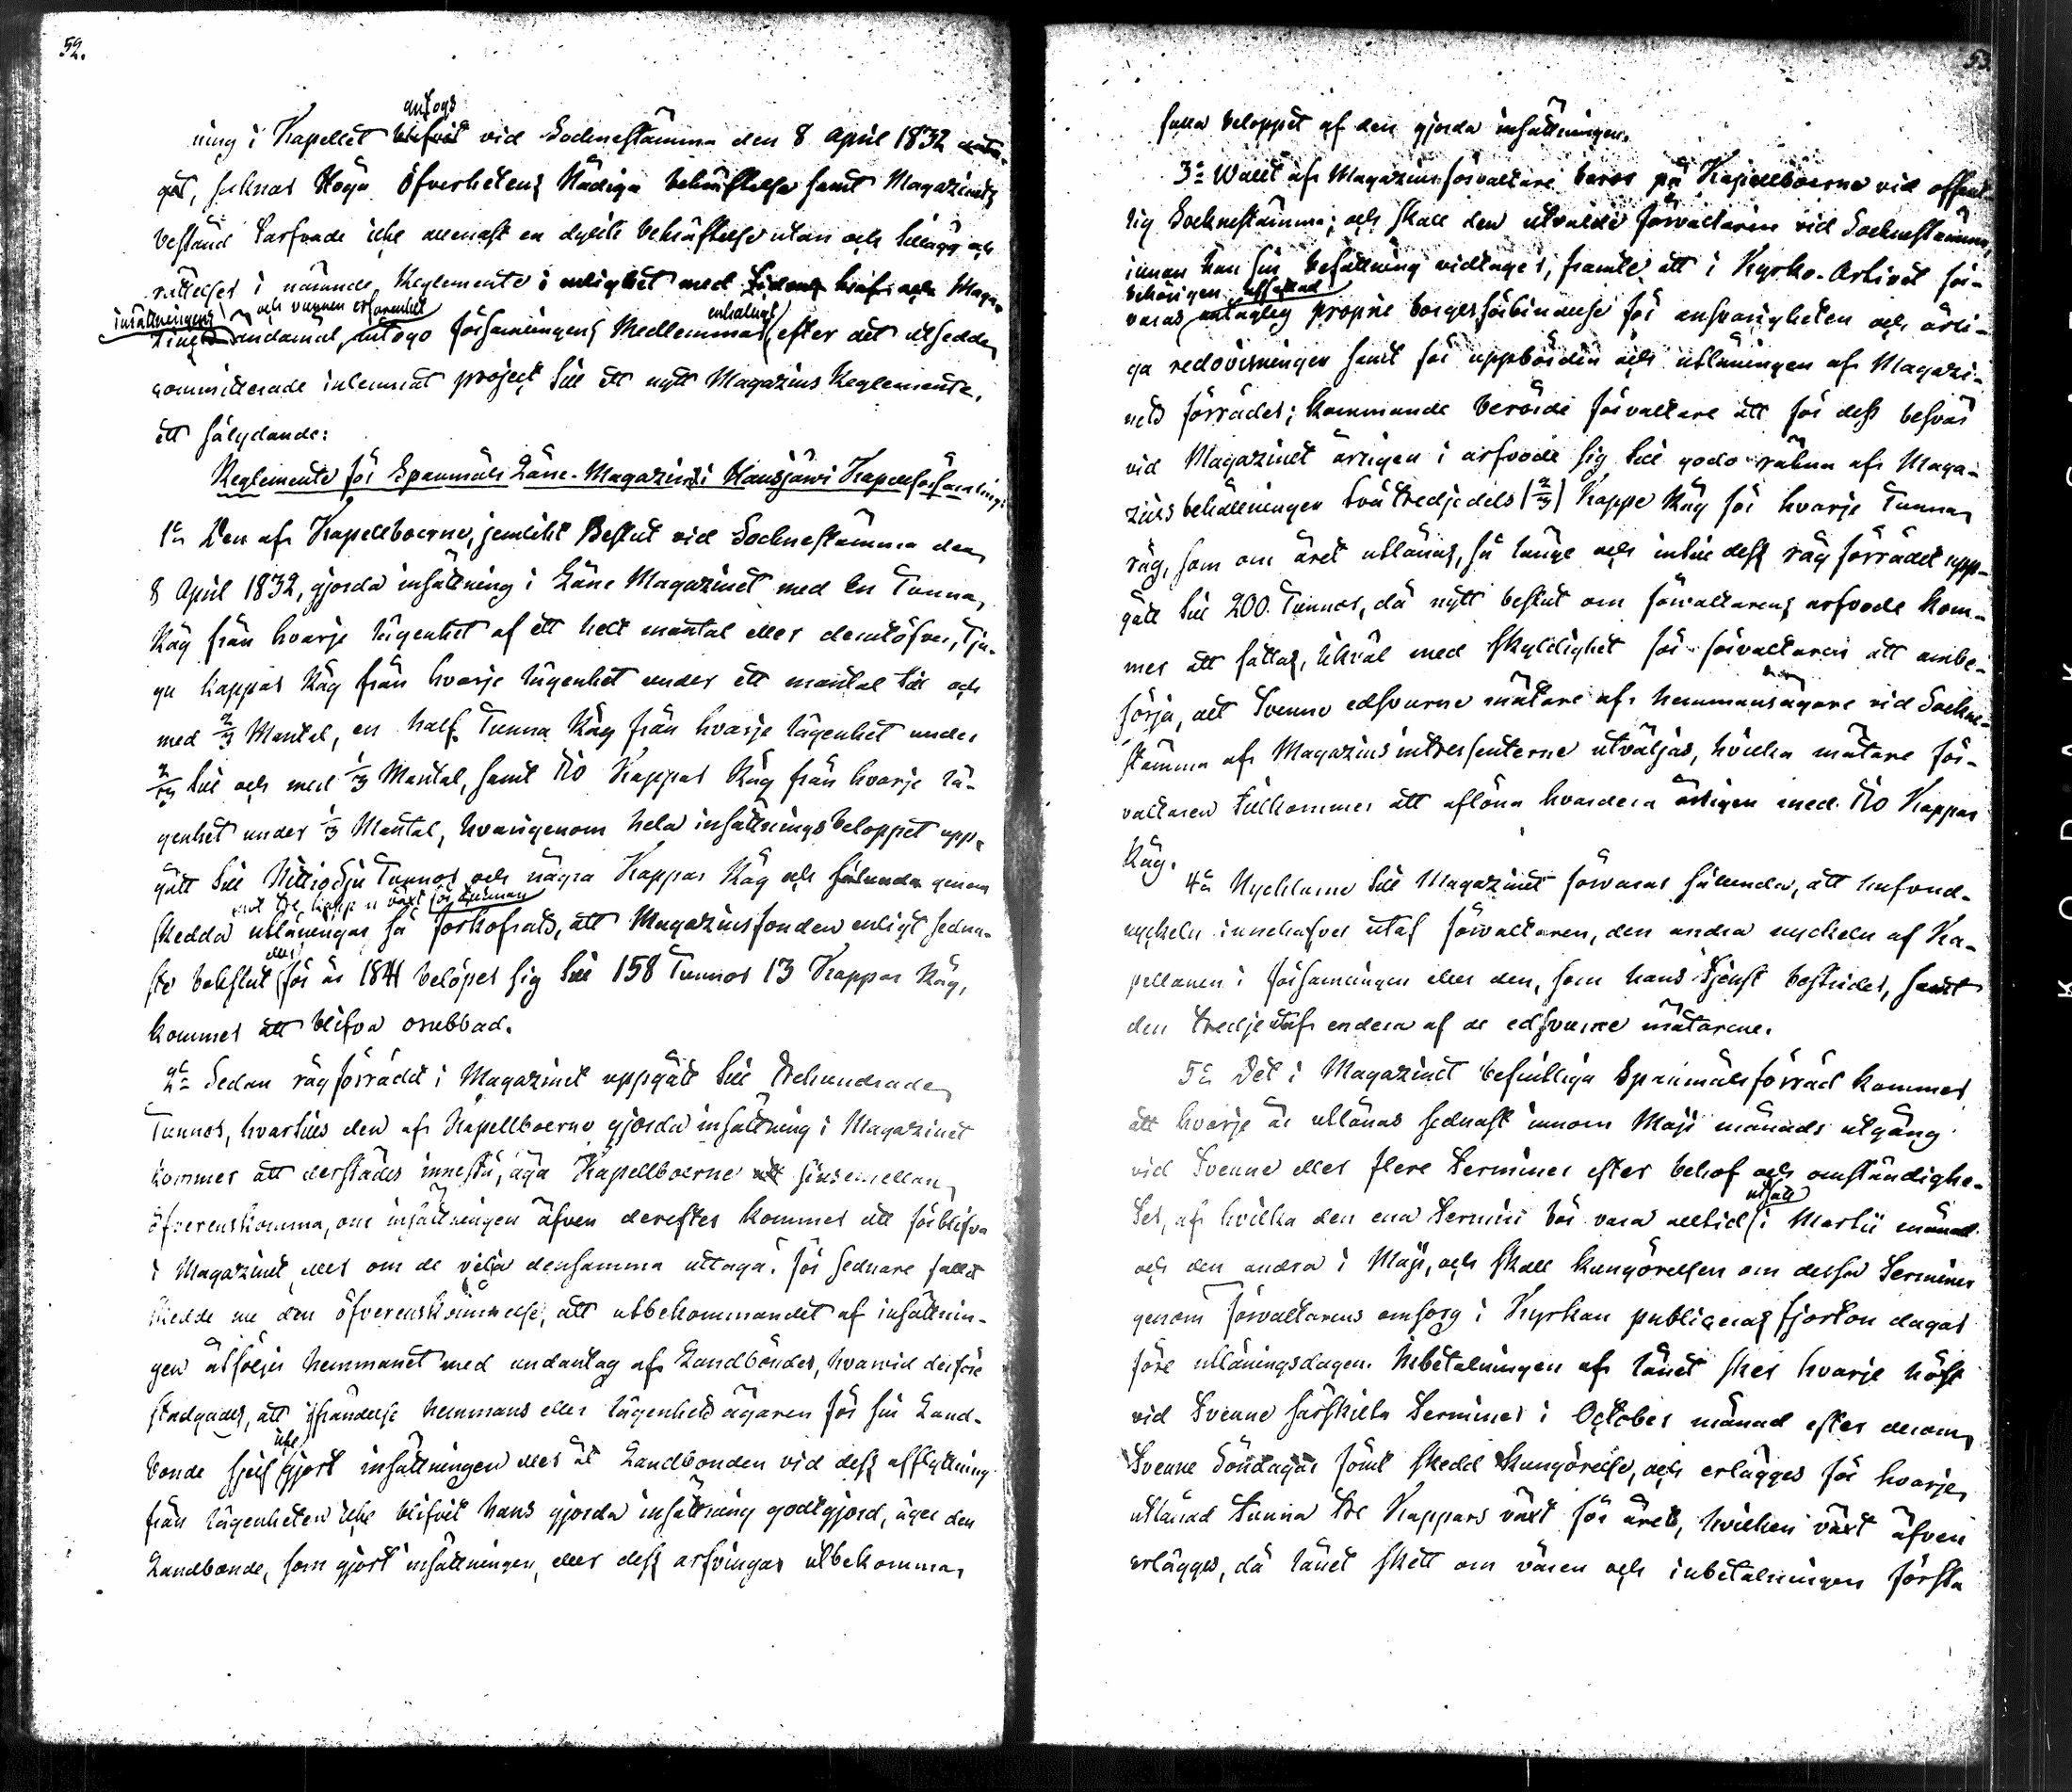 52.
antogs
ning i Kapellet blifvit vid Socknestämma den 8 April 1832 anta-
get, saknas Höga Öfverhetens Nådiga bekräftelse samt Magazinets
bestånd tarfvade icke allenast en dylik bekräftelse utan och tillägg och
rättelser i nämnde Reglemente i enlighet med tidens kraf och Maga-
inrättningens och vunnen erfarenhet enhälligt
zinets ändamål, antogo Församlingens Medlemmar efter det utsedde
committerade inlemnat project till ett nytt Magazins Reglemente,
ett sålydande:
Reglemente för Spanmåls Låne-Magazinet i Hausjärvi Kapellförsamling:
1o Den af Kapellboerne, jemlikt Beslut vid Socknestämma den
8 April 1832, gjorda insättning i Låne Magazinet med En Tunna
Råg från hvarje lägenhet af ett helt mantal eller derutöfver, Tju-
gu kappar Råg från hvarje lägenhet under ett mantal till och
med 2/3 Mantal, en half Tunna Råg från hvarje lägenhet under
2/3 till och med 1/3 Mantal, samt Tio Kappar Råg från hvarje lä-
genhet under 1/3 Mantal, hvarigenom hela insättnings beloppet upp-
gått till Nittiosju Tunnor och några Kappar Råg och sålunda genom
mot tre kappars växt för tunnan
skedda utlåningar så förkofrats, att Magazinsfonden enligt sedna-
eller
ste bokslut för år 1841 belöper sig till 158 Tunnor 13 Kappar Råg,
kommer att blifva orubbad.
2o Sedan rågförrådet i Magazinet uppgått till Trehundrade
Tunnor, hvartills den af Kapellboerne gjorda insättning i Magazinet
kommer att derstädes innestå, äga Kapellboerne att sinsemellan
öfverenskomma, om insättningen äfven derefter kommer att förblifva
i Magazinet, eller om de vilja densamma uttaga. För sednare fallet
skedde nu den öfverenskommelse, att utbekommandet af insättnin-
gen åtföljer hemmanet med undantag af Landbönder, hvarvid derföre
stadgades, att ifrändelse hemmans eller lägenhets ägaren för sin Land-
icke
bonde sjelf gjort insättningen eller åt Landbonden vid dess afflyttning
från lägenheten icke blifvit hans gjorda insättning godtgjord, äger den
Landbonde, som gjort insättningen, eller dess arfvingar utbekomma
53
fulla beloppet af den gjorda insättningen.
3o Walet af Magazins förvaltare beror på Kapellboerne vid offent-
lig Socknestämma; och skall den utvalde förvaltaren vid Socknestämma,
innan han sin befattning vidtager, framte, att i Kyrko-Arkivet för-
behörigen affattad
varas antaglig proprie borgesförbindelse för ansvarigheten och årli-
ga redovisningen samt för uppbörden och utlåningen af Magazi-
nets förråder; kommande berörde förvaltare att för dess besvär
vid Magazinet årligen i arfvode sig till godo räkna af Maga-
zins behållningen två tredjedels (2/3) Kappe Råg för hvarje Tunna
råg, som om året utlånas, så länge och intill dess råg förrådet upp-
gått till 200. Tunnor, då nytt beslut om förvaltarens arfvode kom-
mer att fattas, likväl med skyldighet för förvaltaren att ombe-
sörja, att Tvenne edsvurne mätare af hemmansägare vid Sockne-
stämma af Magazins intressenterne utväljas, hvilka mätare för-
valtaren tillkommer att aflöna hvardera årligen med Tio Kappar
Råg.
4o Nycklarne till Magazinet förvaras sålunda, att hufvud-
nyckeln innehafves utaf förvaltaren, den andra nyckeln af Ka-
pellanen i Församlingen eller den, som hans Tjenst bestrider, samt
den tredje utaf endera af de edsvurne mätarene.
5o Det i Magazinet befintliga Spanmåls förråd kommer
att hvarje år utlånas sednast innom Maji månads utgång
vid Tvenne eller flere Terminer efter behof och omständighe-
utsatt
ter, af hvilka den ena Termin bör vara alltid i Martii månad
och den andra i Maji, och skall kungörelsen om dessa Terminer
genom förvaltarens omsorg i Kyrkan publiceras fjorton dagar
före utlåningsdagen. Inbetalningen af lånet sker hvarje höst
vid Tvenne särskilta Terminer i October månad efter derom
Tvenne Söndagar förut skedd Kungörelse, och erlägges för hvarje
utlånad Tunna Tre Kappars växt för året, hvilken växt äfven
erlägges, då lånet skett om våren och inbetalningen första
KODAK